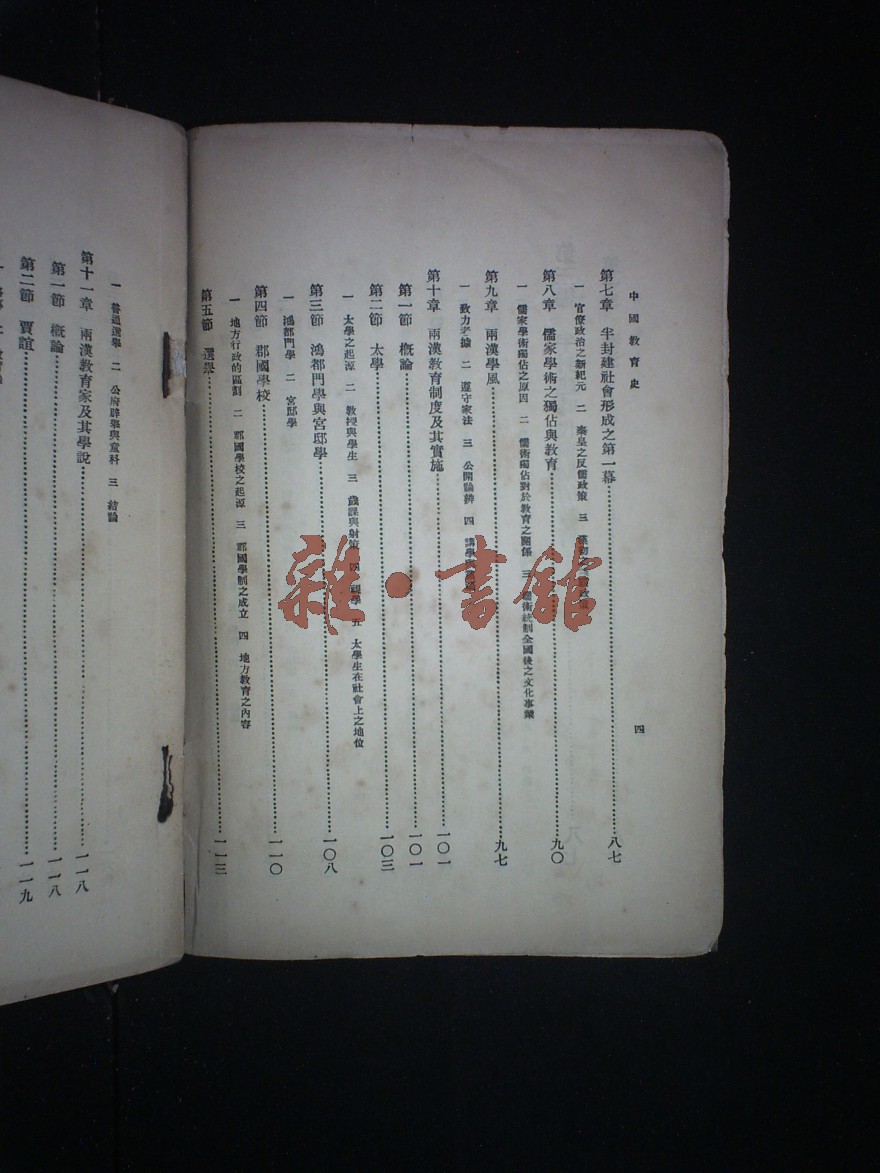 中國教育史
四
第七章 半封建社會形成之第一幕……八七
一 官僚政治之新紀元 二 秦皇之反儒政策 三
第八章 儒家學術之獨佔與教育……九〇
一 儒家學術獨佔之原因 二 儒術獨佔對於教育之關係 三 儒術統制全國後之文化事業
第九章 兩漢學風……九七
一 致力考據 二 遵守家法 三 公開論辯 四 講學
第十章 兩漢教育制度及其實施……一〇一
第一節 概論……一〇一
第二節 太學……一〇三
一 太學之起源 二 教授與學生 三 歲課與射策 四 視學 五 太學生在社會上之地位
第三節 鴻都門學與宮邸學……一〇八
一 鴻都門學 二 宮邸學
第四節 郡國學校……一一〇
一 地方行政的區劃 二 郡國學校之起源 三 郡國學制之成立 四 地方教育之內容
第五節 選舉……一一三
一 普通選舉 二 公府辟舉與童科 三 結論
第十一章 兩漢教育家及其學說……一一八
第一節 概論……一一八
第二節 賈誼……一一九
雜·書館